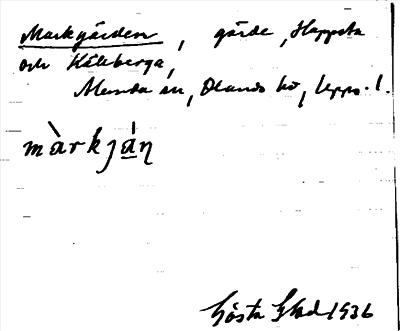 Markgärden, gärde, Heppsta
och Källberga,
Munda sn, Olands hd, Upps. l.
màrkjáŋ
Gösta Ghd 1936